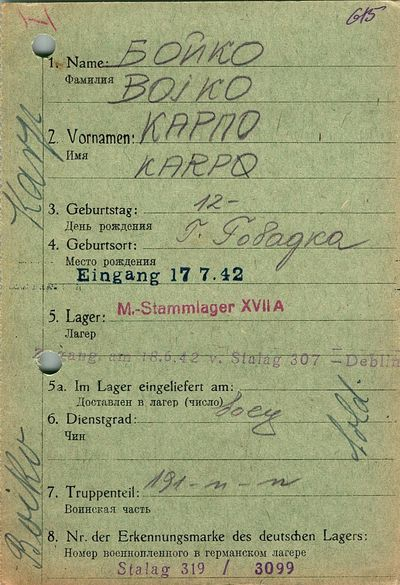 V
615
1. Name: БОЙКО
Фамилия
BOJKO
2. Vornamen: КАРПО
Имя
KARPO
3. Geburtstag: 12-
День рождения
4. Geburtsort: Г.
Место рождения
Eingang 17 7.42
5. Lager: M.-Stammlager XVII A
Лагер
am 18.6.42 v. Stalag 307 – Deblin
5a. Im Lager eingeliefert am:
Доставлен в лагер (число)
6. Dienstgrad:
Чин
Sold.
7. Truppenteil: 191-п-п
Воинская часть
8. Nr. der Erkennungsmarke des deutschen Lagers:
Номер военнопленного в германском лагере
Stalag 319 / 3099
Boiko
Karp